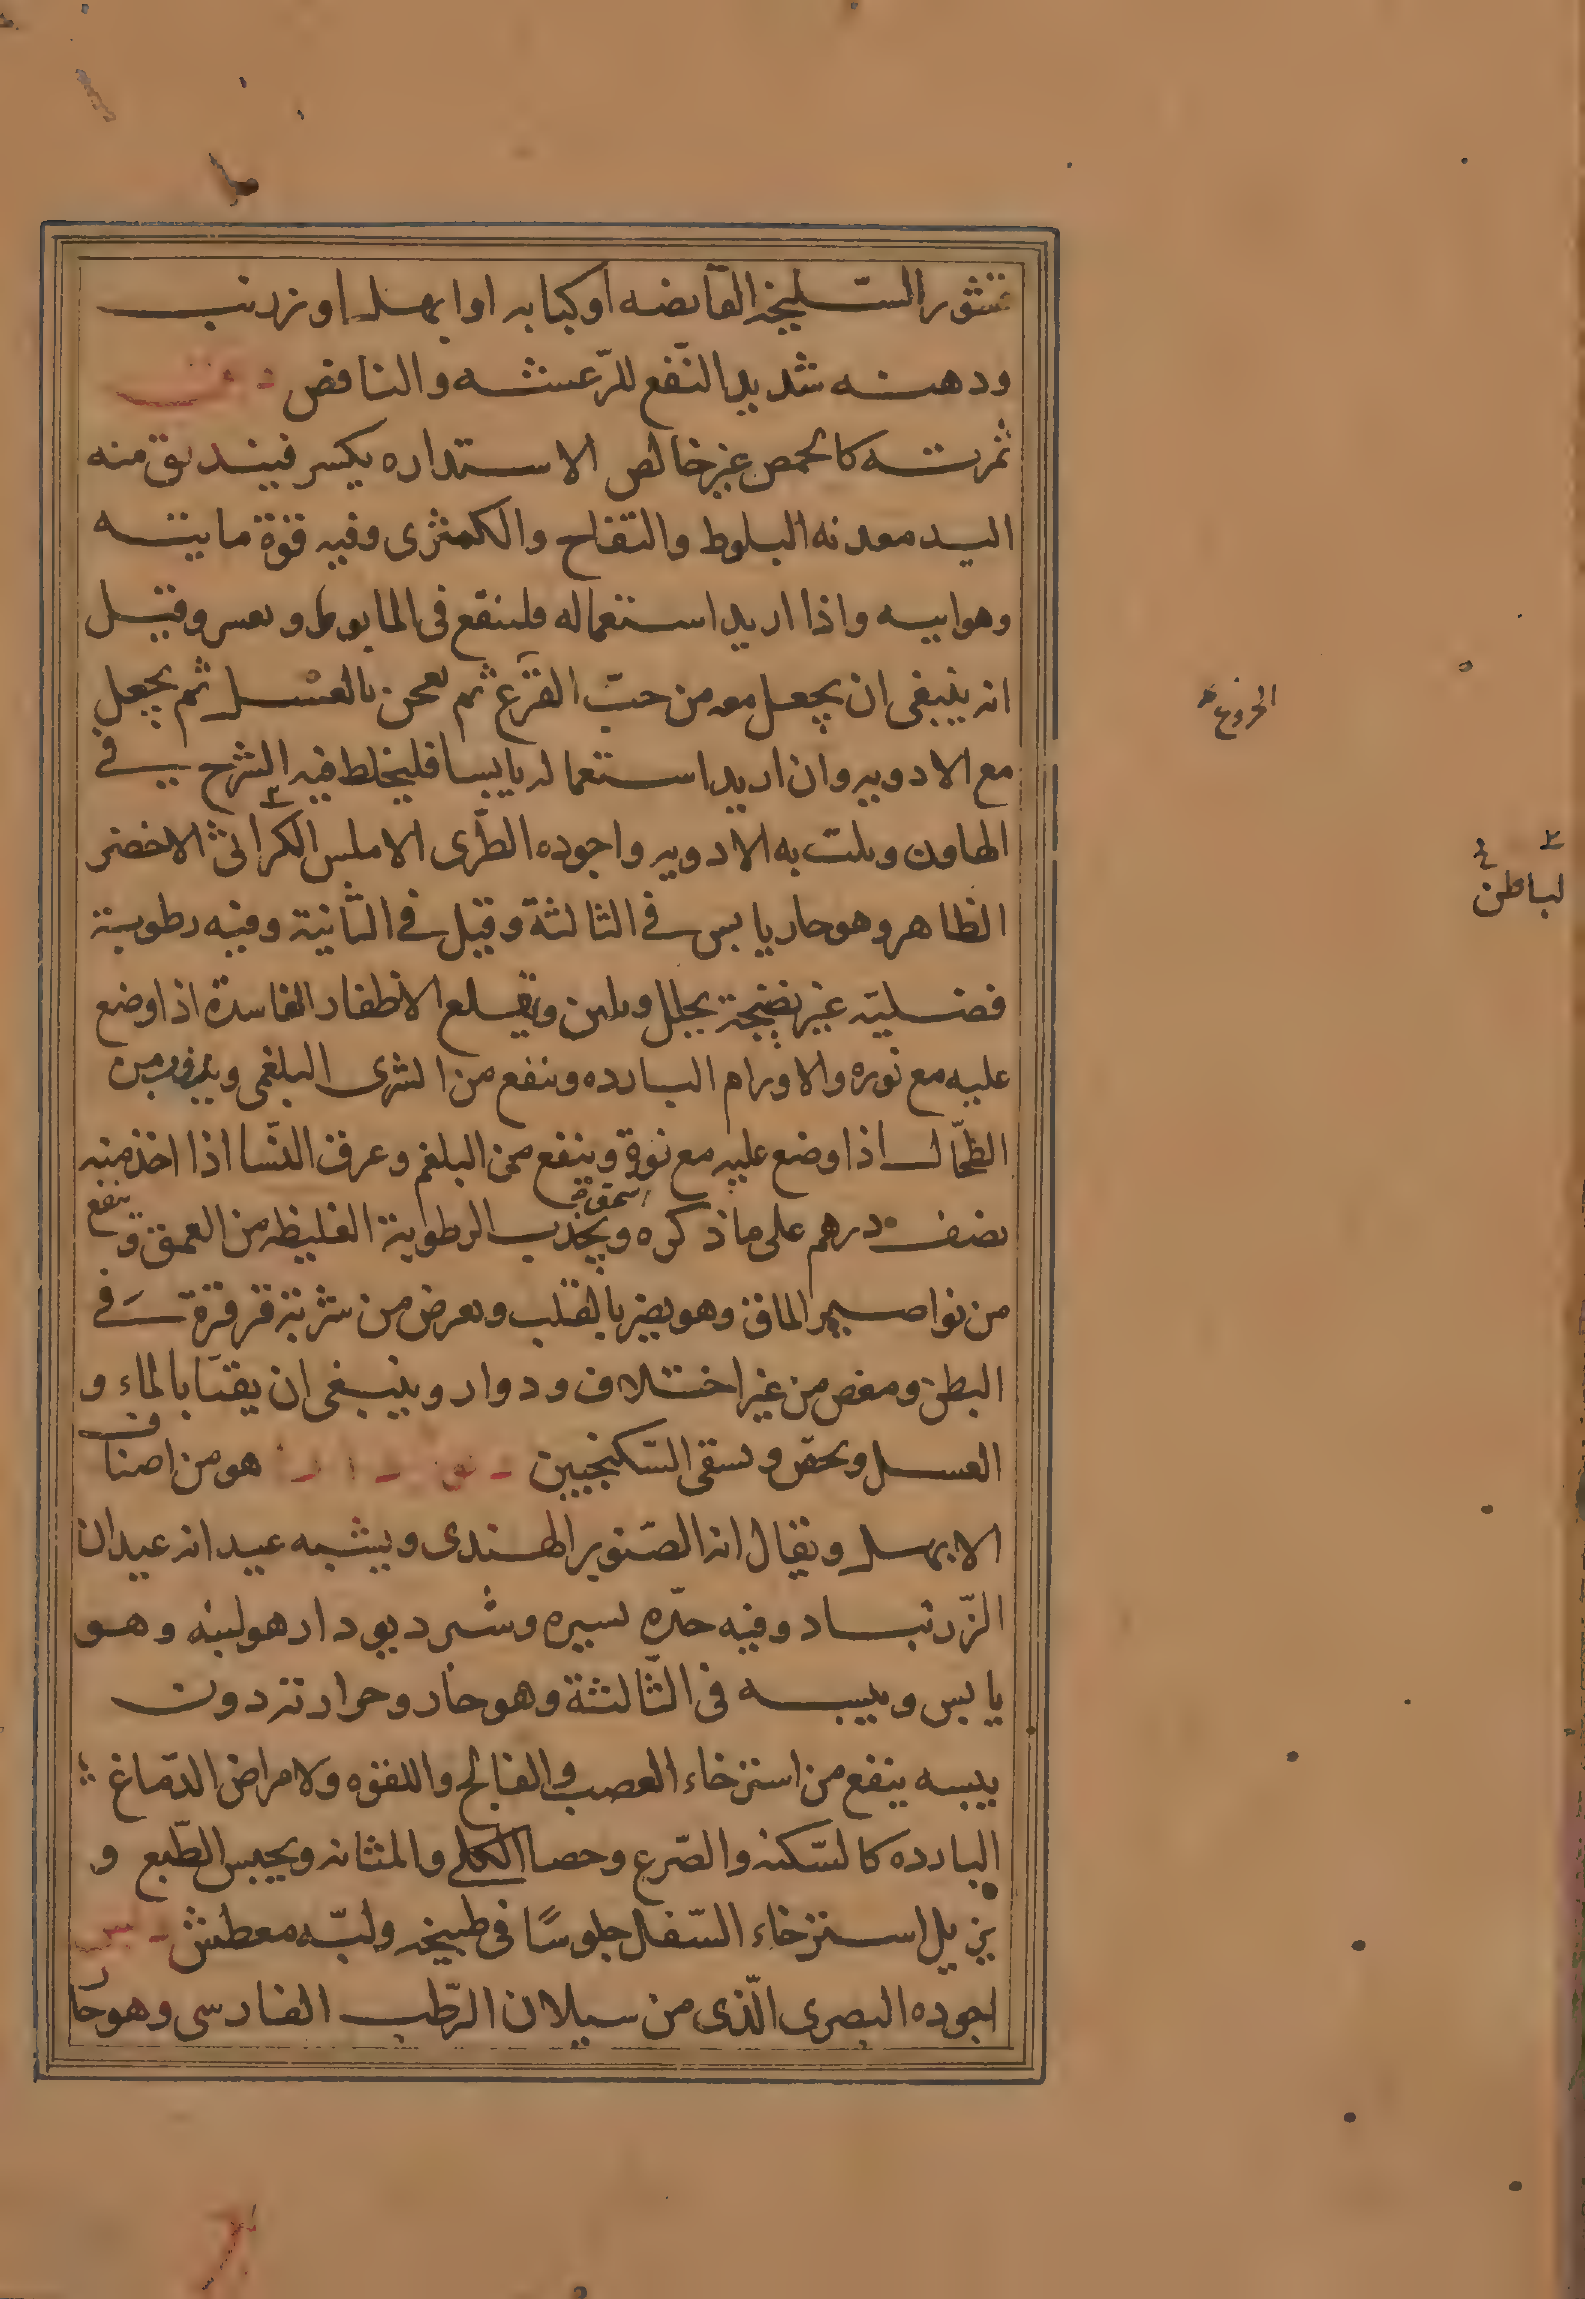 قشور السّليخه القابضه او كبابه او ابهل او زرنب
ودهنه شديد النّفع للرّعشه والنافض دبق
ثمرته كالحمص غير خالص الاستداره يكسر فيندبق منه
اليد معدنه البلوط والتفاح والكمثرى وفيه قوة مايته
وهواىيه واذا اريد استعماله فلينقع فى الما يوما و وقيل
انه ينبغى ان يجعل معه من حبّ القرع ثم يعجن بالعسل ثم يجعل
الخروع
مع الادويه وان اريد استعماله يابسا فليخلط فيه الشرح فى
الهاون ويلت به الادويه واجوده الطّرى الاملس الكراثى الاخضر
لباطن
الظاهر وهو حار يابس فى الثالثة وقيل فى الثّانية وفيه رطوبة
فضليّه غير نضيجة يحلل ويلين ويقلع الاظفار الفاسدة اذا وضع
عليه مع نوره والاورام البارده وينفع من الشرى البلغمى
الطّحال اذا وضع عليه مع نورة وينفع من البلغم وعرق النّسا اذا اخذ منه
نصف درهم على ما ذكره ويجذب الرطوبة الغليظه من العمق وينفع
من نواصير الماق وهو يضر بالقلب ويعرض من شربه قرقرة فى
البطن ومغص من غير اختلاف ودوار وينبغى ان يقيا بالماء و
العسل ويحقن ويسقى السّكنجبين هو من اصناف
الابهل ويقال انه الصّنوبر الهندى ويشبه عيدانه عيدان
الزّرنباد وفيه حدّه يسيره وشىر ديودار هو لبنه وهو
يابس ويبسه فى الثّالثة وهو حار وحرارته دون
يبسه ينفع من استرخاء العصب والفالج واللقوه ولامراض الدّماغ
البارده كالسّكته والصّرع وحصا الكلى والمثانه ويحبس الطّبع و
يزيل استرخاء السّفل جلوسًا فى طبيخه ولبّه معطش دبس
اجوده البصرى الّذى من سيلان الرّطب الفارسى وهو حار